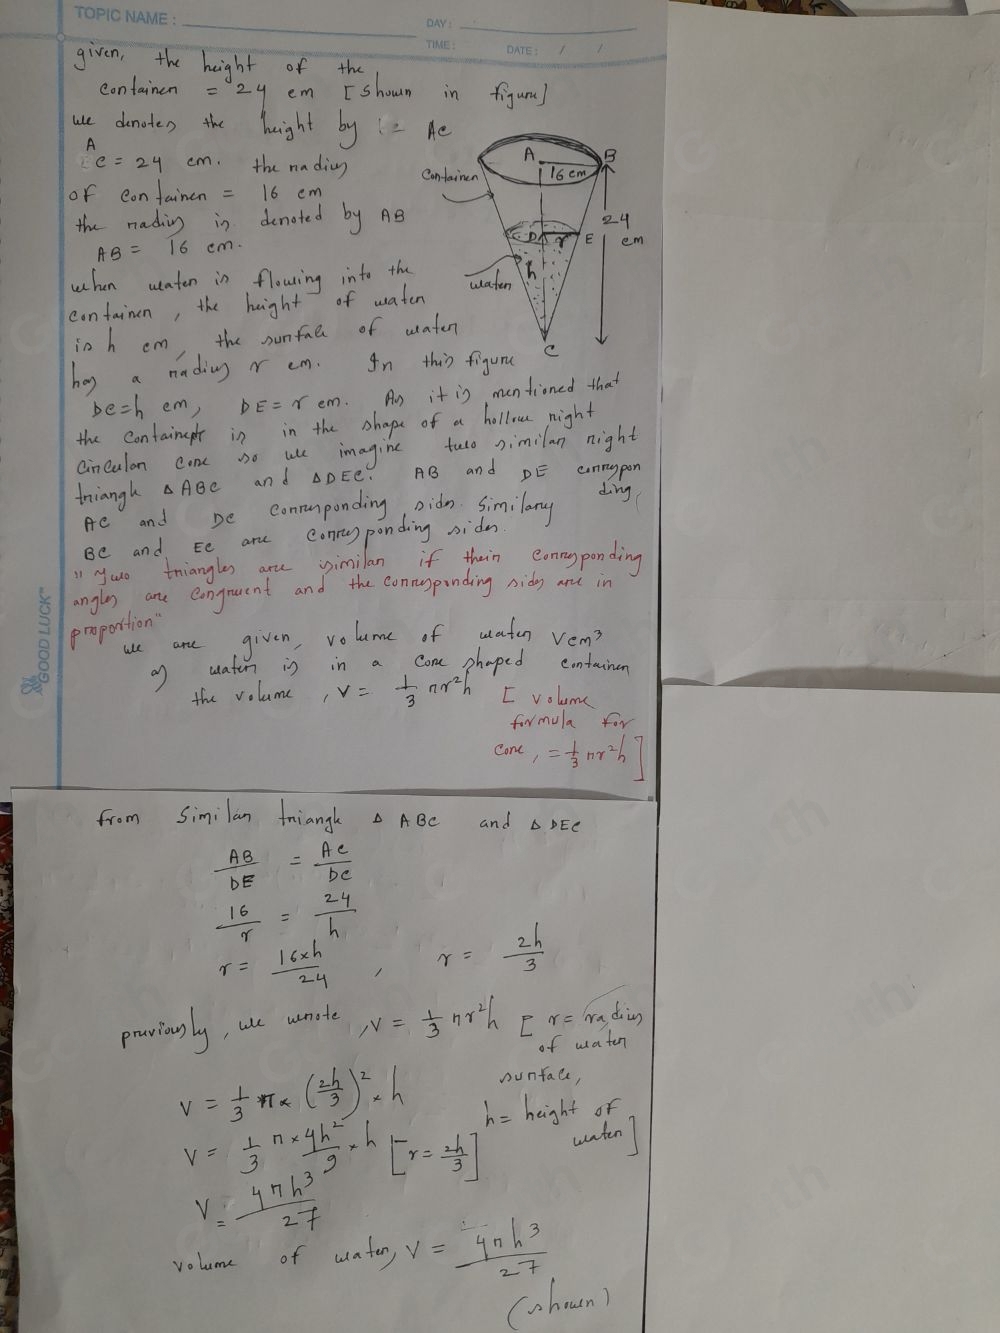 TOPIC NAME :
DAY :
TIME :
DATE : / /
given, the height of the
container = 24 cm [shown in figure]
we denotes the height by AC
AC = 24 cm. the radius
of container = 16 cm
the radius is denoted by AB
AB = 16 cm.
when water is flowing into the
container, the height of water
is h cm, the surface of water
has a radius r cm. In this figure
DC=h cm, DE=r cm. As it is mentioned that
the container is in the shape of a hollow right
circular cone so we imagine two similar right
triangle △ABC and △DEC. AB and DE correspon
ding,
AC and DC corresponding sides. Similary
BC and EC are corresponding sides.
"Two triangles are similar if their corresponding
angles are congruent and the corresponding sides are in
proportion"
we are given, volume of water V cm³
as water is in a cone shaped container
the volume, V = 1/3 πr²h
[volume
formula for
cone, = 1/3 πr²h]
A
B
16 cm
container
24
cm
D
r
E
h
water
C
GOOD LUCK™
from similar triangle △ ABC and △ DEC
AB/DE = AC/DC
16/r = 24/h
r = 16×h/24 , r = 2h/3
previously, we wrote, V = 1/3 πr²h [r = radius
of water
surface,
h = height of
water]
V = 1/3 π × (2h/3)² × h
V = 1/3 π × 4h²/9 × h [r = 2h/3]
V = 4πh³/27
volume of water, V = 4πh³/27
(shown)